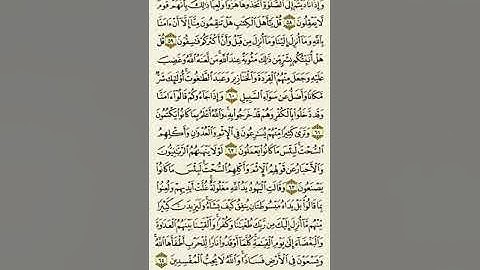 وَإِذَا نَادَيْتُمْ إِلَى ٱلصَّلَوٰةِ ٱتَّخَذُوهَا هُزُوًا وَلَعِبًا ذَٰلِكَ بِأَنَّهُمْ قَوْمٌ
لَّا يَعْقِلُونَ ٥٨ قُلْ يَٰٓأَهْلَ ٱلْكِتَٰبِ هَلْ تَنقِمُونَ مِنَّآ إِلَّآ أَنْ ءَامَنَّا
بِٱللَّهِ وَمَآ أُنزِلَ إِلَيْنَا وَمَآ أُنزِلَ مِن قَبْلُ وَأَنَّ أَكْثَرَكُمْ فَٰسِقُونَ ٥٩ قُلْ
هَلْ أُنَبِّئُكُم بِشَرٍّ مِّن ذَٰلِكَ مَثُوبَةً عِندَ ٱللَّهِ مَن لَّعَنَهُ ٱللَّهُ وَغَضِبَ
عَلَيْهِ وَجَعَلَ مِنْهُمُ ٱلْقِرَدَةَ وَٱلْخَنَازِيرَ وَعَبَدَ ٱلطَّٰغُوتَ أُو۟لَٰٓئِكَ شَرٌّ
مَّكَانًا وَأَضَلُّ عَن سَوَآءِ ٱلسَّبِيلِ ٦٠ وَإِذَا جَآءُوكُمْ قَالُوٓا۟ ءَامَنَّا
وَقَد دَّخَلُوا۟ بِٱلْكُفْرِ وَهُمْ قَدْ خَرَجُوا۟ بِهِۦ وَٱللَّهُ أَعْلَمُ بِمَا كَانُوا۟ يَكْتُمُونَ
٦١ وَتَرَىٰ كَثِيرًا مِّنْهُمْ يُسَٰرِعُونَ فِى ٱلْإِثْمِ وَٱلْعُدْوَٰنِ وَأَكْلِهِمُ
ٱلسُّحْتَ لَبِئْسَ مَا كَانُوا۟ يَعْمَلُونَ ٦٢ لَوْلَا يَنْهَىٰهُمُ ٱلرَّبَّٰنِيُّونَ
وَٱلْأَحْبَارُ عَن قَوْلِهِمُ ٱلْإِثْمَ وَأَكْلِهِمُ ٱلسُّحْتَ لَبِئْسَ مَا كَانُوا۟
يَصْنَعُونَ ٦٣ وَقَالَتِ ٱلْيَهُودُ يَدُ ٱللَّهِ مَغْلُولَةٌ غُلَّتْ أَيْدِيهِمْ وَلُعِنُوا۟
بِمَا قَالُوا۟ بَلْ يَدَاهُ مَبْسُوطَتَانِ يُنفِقُ كَيْفَ يَشَآءُ وَلَيَزِيدَنَّ كَثِيرًا
مِّنْهُم مَّآ أُنزِلَ إِلَيْكَ مِن رَّبِّكَ طُغْيَٰنًا وَكُفْرًا وَأَلْقَيْنَا بَيْنَهُمُ ٱلْعَدَٰوَةَ
وَٱلْبَغْضَآءَ إِلَىٰ يَوْمِ ٱلْقِيَٰمَةِ كُلَّمَآ أَوْقَدُوا۟ نَارًا لِّلْحَرْبِ أَطْفَأَهَا ٱللَّهُ
وَيَسْعَوْنَ فِى ٱلْأَرْضِ فَسَادًا وَٱللَّهُ لَا يُحِبُّ ٱلْمُفْسِدِينَ ٦٤